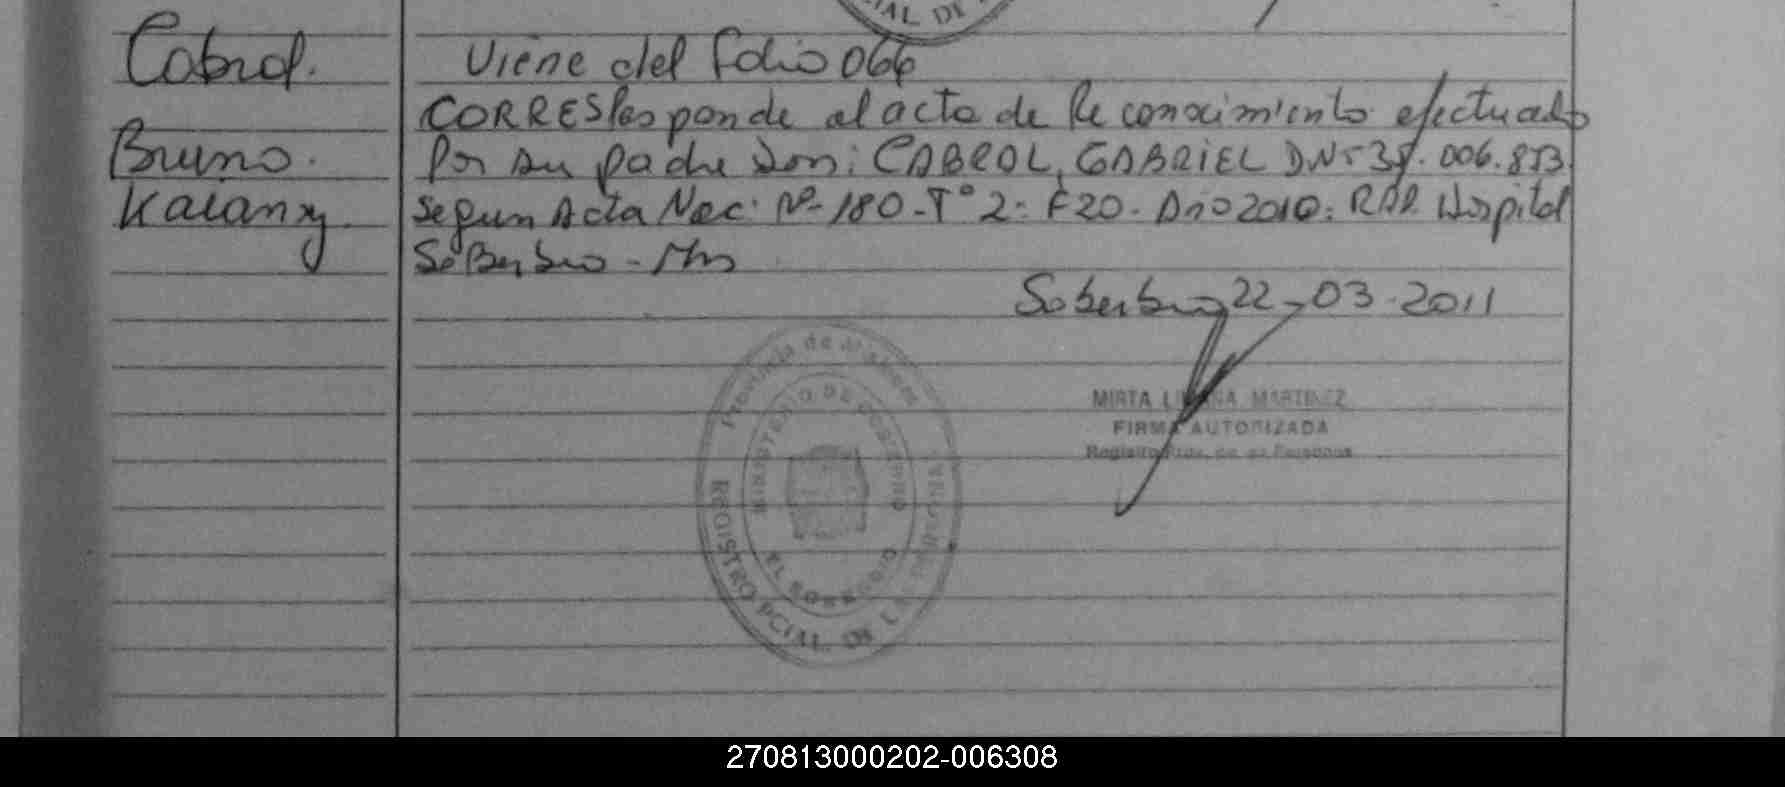 CIAL DE
Cabral.
Viene del folio 066
CORRESPesponde al acta de Reconocimiento efectuado
Bruno.
Por su padre Don: CABRAL, GABRIEL DNI 35.006.853.
Kaiany.
Segun Acta Nac: Nº 180-Tº 2: F20. Año 2010: RPP. Hospital
SoBerbio - Mns
Soberbio 22-03-2011
MIRTA LILIANA MARTINEZ
FIRMA AUTORIZADA
Registro Prov. de las Personas
Provincia de Misiones
MINISTERIO DE GOBIERNO
EL SOBERBIO
REGISTRO PCIAL. DE LAS PERSONAS
270813000202-006308